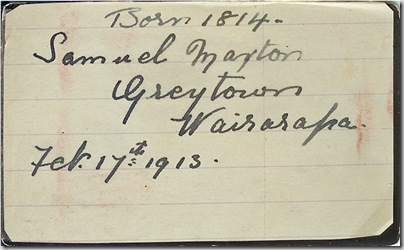 Born 1814.
Samuel Maxton
Greytown
Wairarapa.
Feb. 17st 1913.